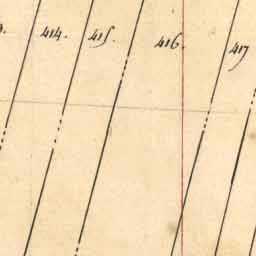 414. 415. 416. 417